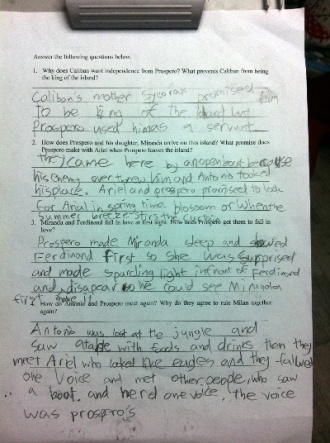 Answer the following questions below.
1. Why does Caliban want independence from Prospero? What prevents Caliban from being
the king of the island?
Caliban's mother Sycorax promised him
to be king of the island but
Prospero used him as a servant
2. How does Prospero and his daughter, Miranda arrive on this island? What promise does
Prospero make with Ariel when Prospero leaves the island?
They came here by an open boat because
his enemy overthrew him and Antonio tooked
his place. Ariel and prospero promised to look
for Arial in spring time blossom or when the
summer breeze stirs the
3. Miranda and Ferdinand fall in love at first sight. How does Prospero get them to fall in
love?
Prospero made Miranda sleep and showed
Ferdinand first so she was supprised
and made sparcling light infront of Ferdinand
and disapear so he could see Miranda
first
2. How do Antonio and Prospero meet again? Why do they agree to rule Milan together
again?
Antonio was lost at the jungle and
saw a table with foods and drinks then they
meet Ariel who looked like eagles and they follwed
one voice and met other people, who saw
a boat, and herd one voice, the voice
was prospero's